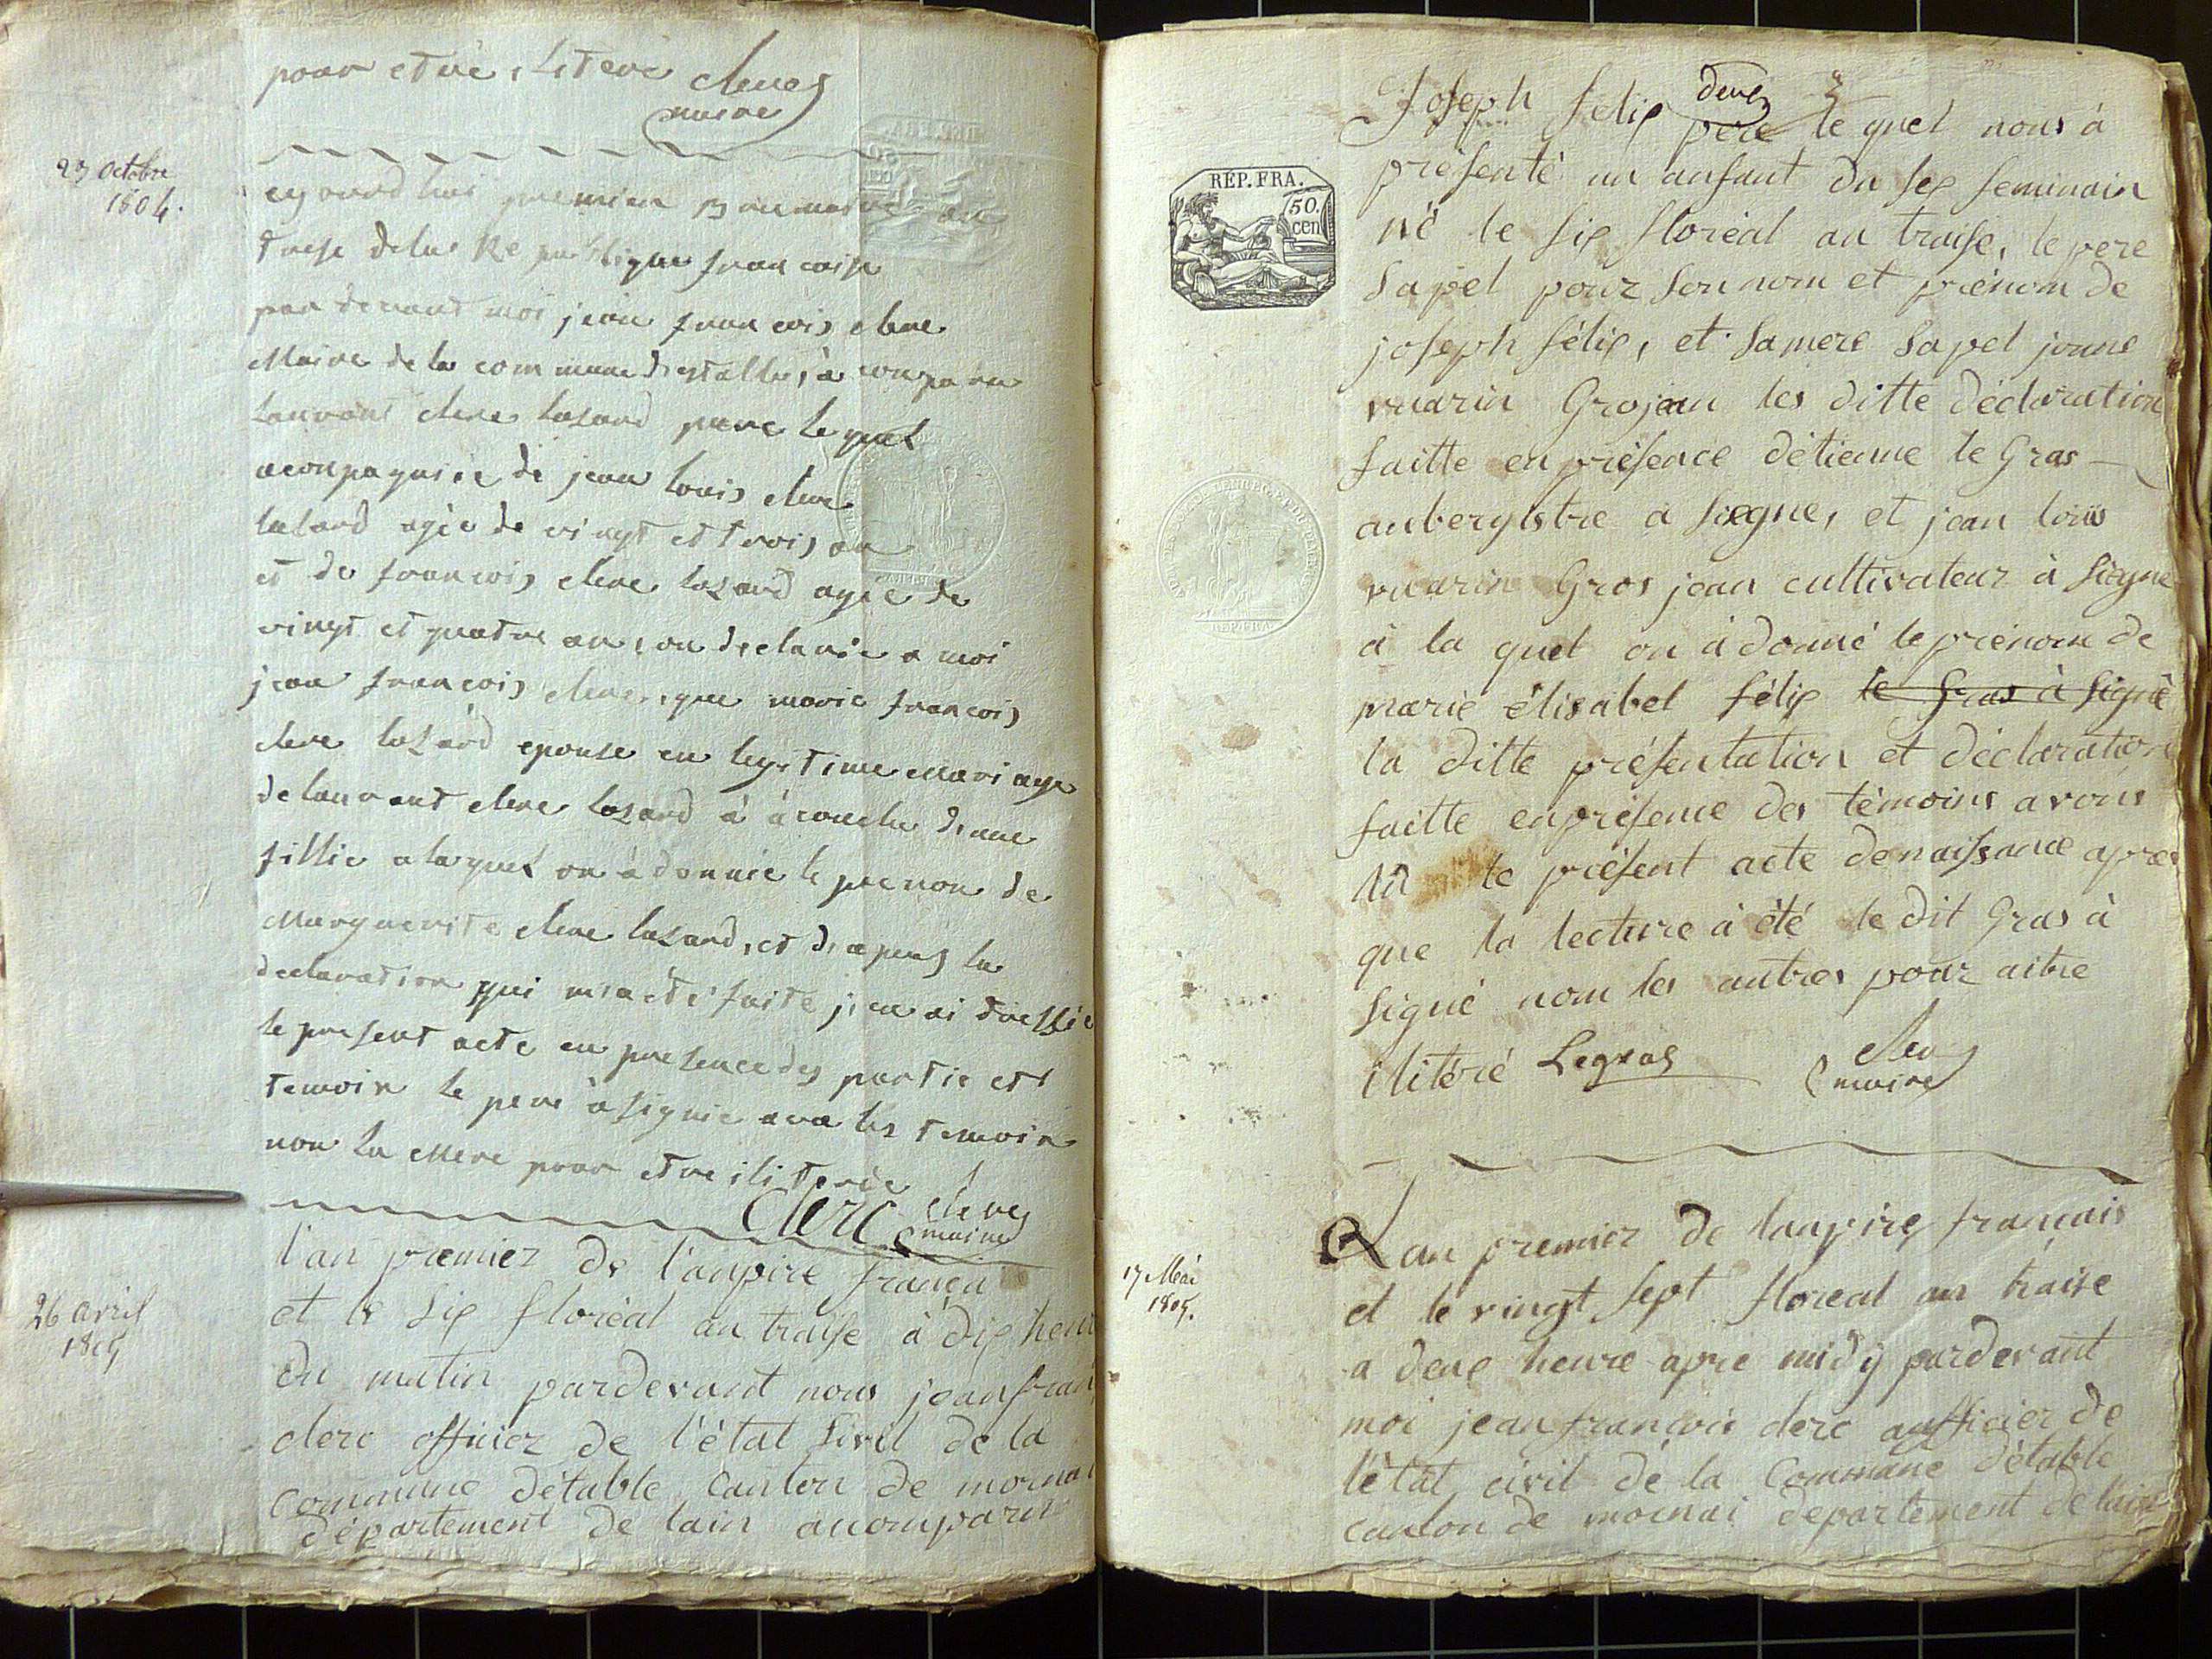 pour etre iliteré clerc
maire
23 Octobre
1804.
aujourdhui premier brumaire an
treze delas Republique francaise
par devant moi jean francois clerc
Maire de la commune destables à conparu
laurant clerc lazard pere le quel
aconpagniée de jean louis clerc
lazard agée de vingt et trois an
et de francois clerc lazard agée de
vingt et quatre an, on declarée a moi
jean francois clerc, que marie francois
clerc lazard epouse en legitime mariage
de laurant clerc lazard à àcouchée dune
fillie a laquel on à donnée le prenon de
Marguerite clerc lazard, et daprés la
declaration qui mia été faite jen ai dressée
le present acte en presence des partie et
temoin le pere à signiée avec les temoin
non la Mere pour etre iliterée
clerc clerc
maire
26 avril
1805
l'an premier de l'anpire françai
et le six floréal an traise à dix heur
du matin pardevant nous jean fran
clerc officier de l'état sivil de la
commune détable canton de mornai
département de lain acomparu
Joseph félix deux
pére le quel nous à
présenté un anfant du sex feminain
né le six floréal an traise, le pere
sapel pour son nom et prénom de
joseph félix, et samere sapel jeanne
vuarin Grojean les ditte déclaration
faitte en présence détienne le Gras
aubergistre a siegne, et jean louis
vuarin Gros jean cultivateur à siegne
à la quel on à donné le prénom de
marie élisabet félix le Gras à signé
la ditte présentation et déclaration
faitte enprésence des témoins avons
le présent acte denaissance apres
que la lecture à été le dit Gras à
signé nom les autres pour aitre
ilitéré Legras clerc
maire
RÉP. FRA.
50.
cen
REP. FRA
17 Mai
1805.
Lan premier de lanpire français
et le vingt sept floreal an traise
a deux heure aprie midÿ pardevant
moi jean françois clerc aufficier de
l'état civil de la Commune détable
canton de mornai département de lain